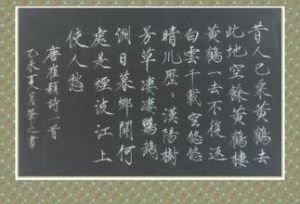 昔人已乘黃鶴去
此地空餘黃鶴樓
黃鶴一去不復返
白雲千載空悠悠
晴川歷々漢陽樹
芳草淒淒鸚鵡
洲日暮鄉關何
處是煙波江上
使人愁
唐崔顥詩一首
月 書